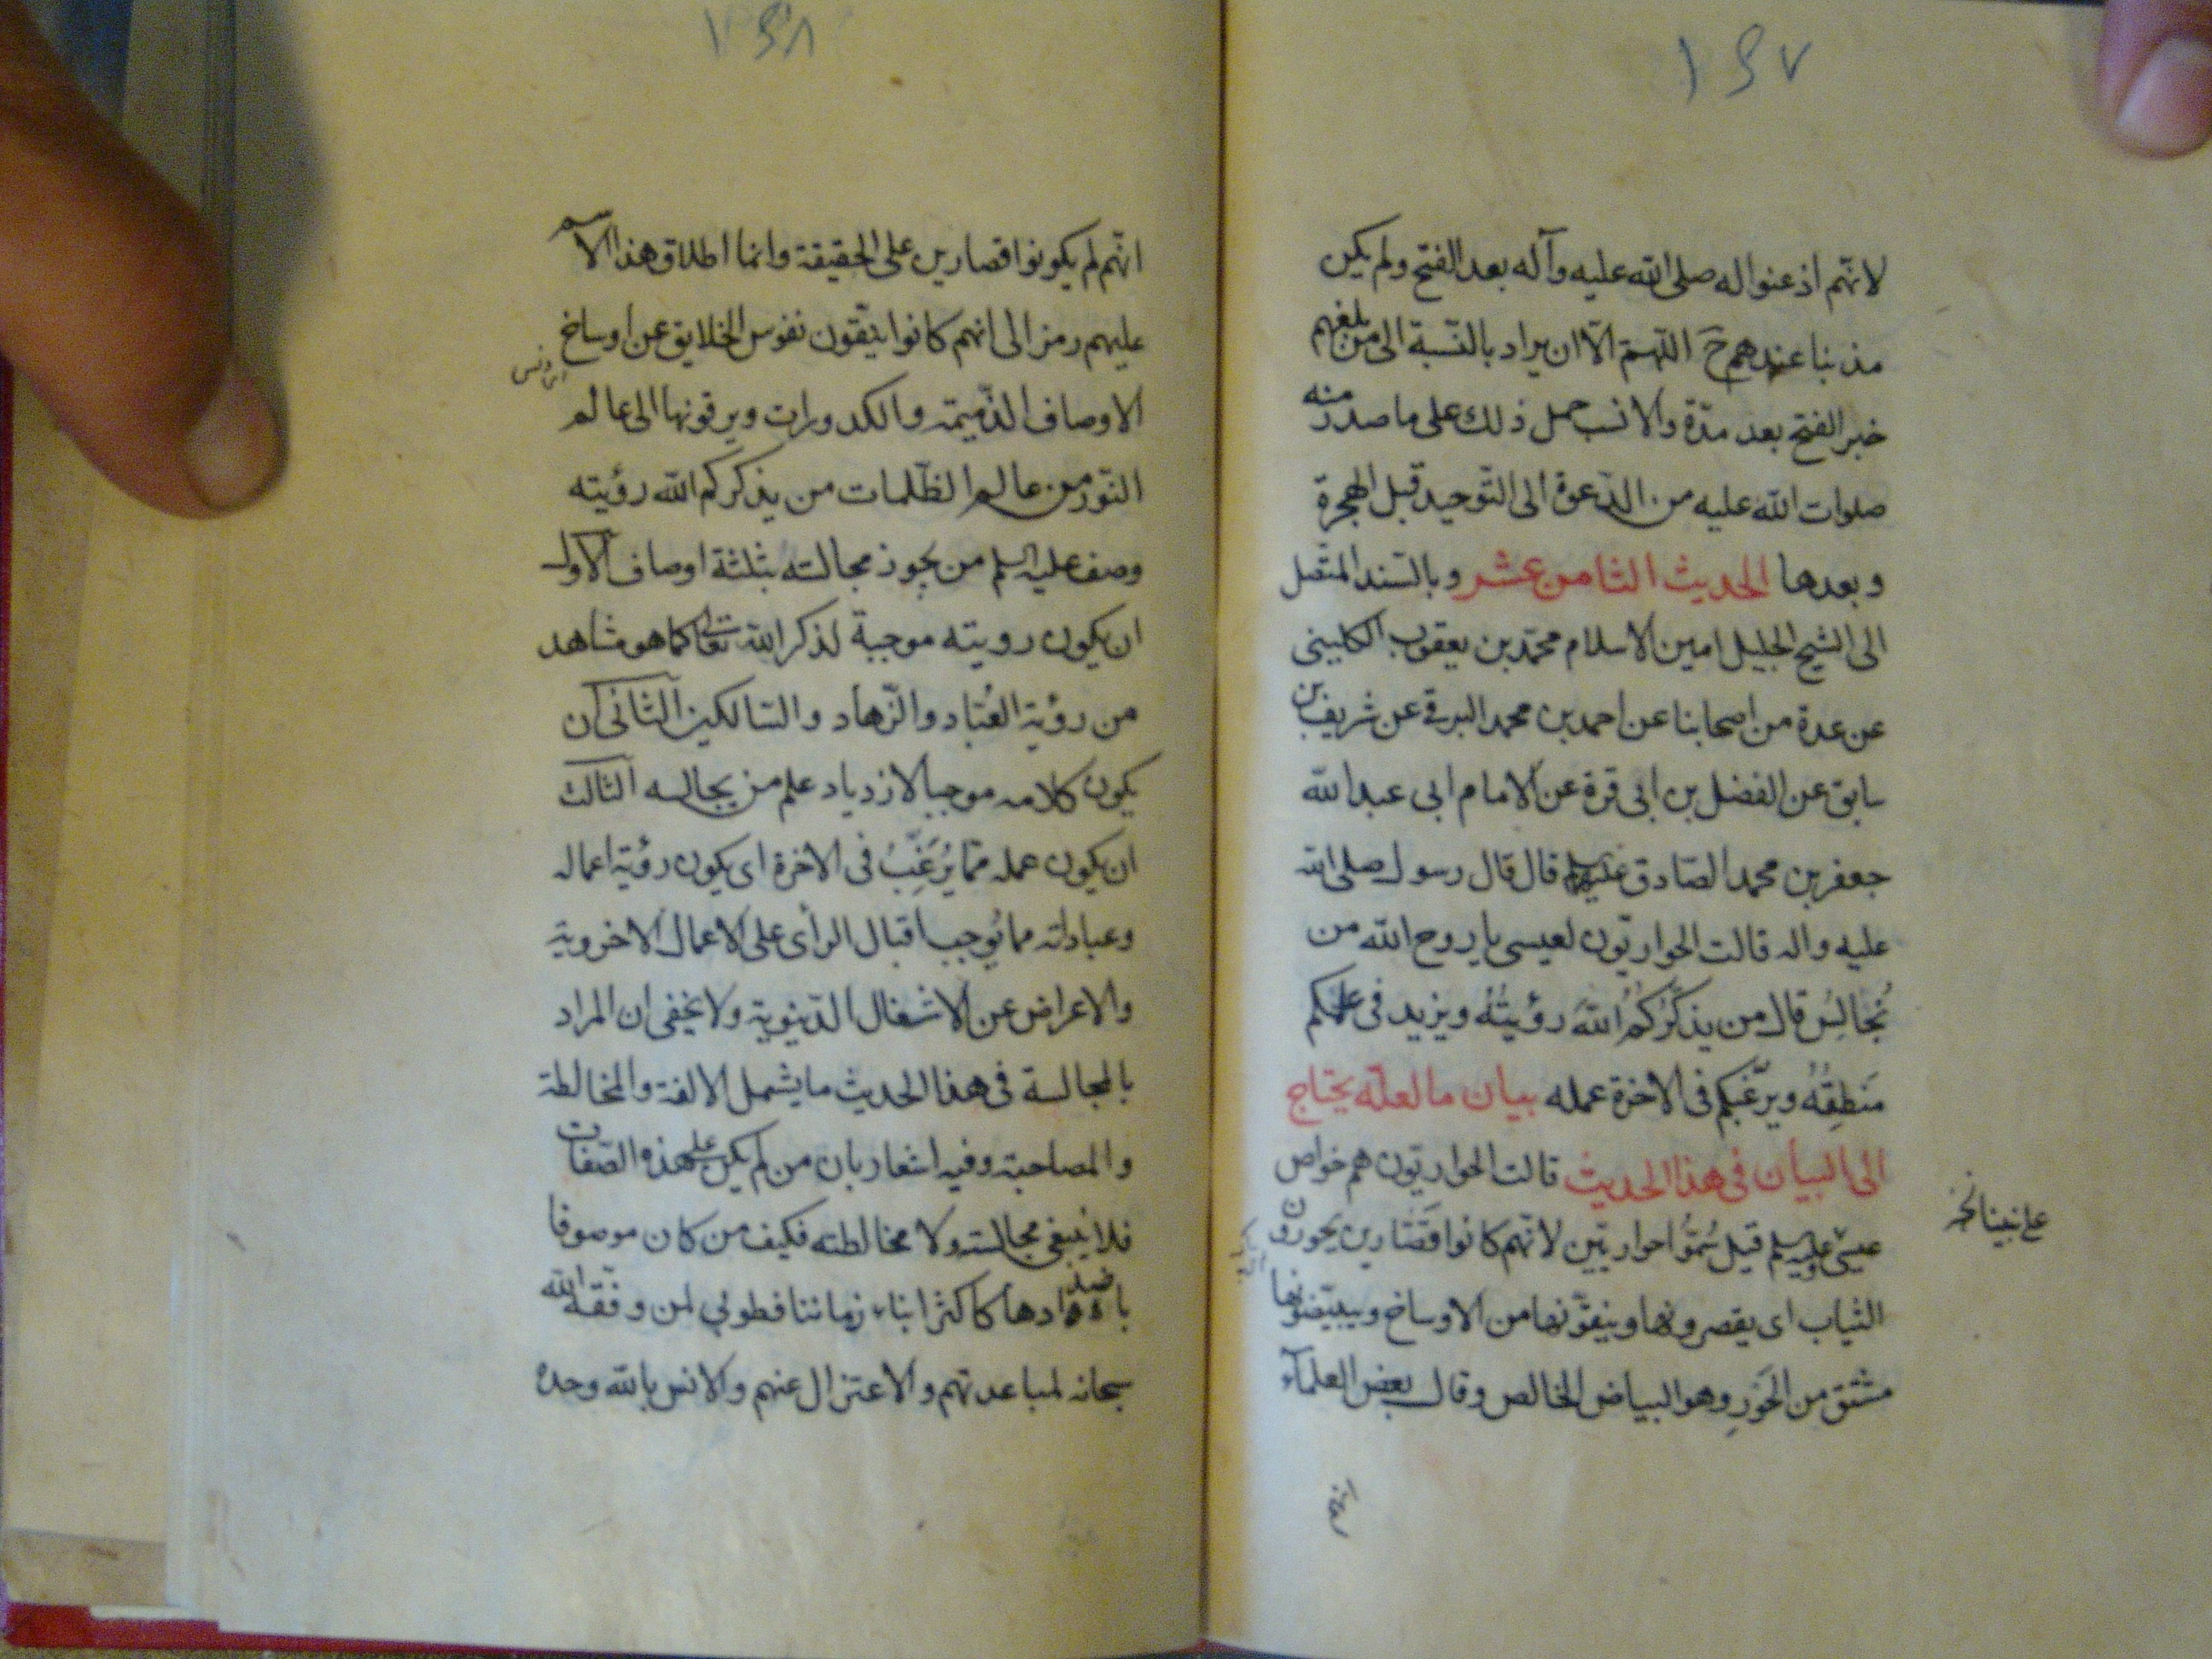 ١٤٧
لانّهم اذعنوا له صلى الله عليه وآله بعد الفتح ولم يكن
مذنبا عندهم ح اللّهمّ الّا ان يراد بالنّسبة الى من بلغهم
خبر الفتح بعد مدّة والانسب حمل ذلك على ما صدر منه
صلوات الله عليه من الدّعوة الى التّوحيد قبل الهجرة
وبعدها الحديث الثامن عشر وبالسّند المتّصل
الى الشيخ الجليل امين الاسلام محمّد بن يعقوب الكلينى
عن عدة من اصحابنا عن احمد بن محمد البرقى عن شريف بن
سابق عن الفضل بن ابى قرة عن الامام ابى عبد الله
جعفر بن محمد الصّادق قال قال رسول صلى الله
عليه واله قالت الحواريّون لعيسى يا روح الله من
نُجالِسُ قال من يذكّركُمُ اللهَ رؤيتُهُ ويزيد فى علمكم
مَنطِقُهُ ويرغّبكم فى الاخرة عمله بيان ما لعلّه يحتاج
الى البيان فى هذا الحديث قالت الحواريّون هم خواص
على نبينا
عيسى عليه السلم قيل سُمُّوا حواريّين لانّهم كانوا قَصّارين يحورون
الثياب اى يقصرونها وينقّونها من الاوساخ ويبيّضونها
مشتق من الحَوَرِ وهو البياض الخالص وقال بعض العلمآء
انهم
١٤٨
انّهم لم يكونوا قصارين على الحقيقة وانما اطلاق هذا الاسم
عليهم رمز الى انهم كانوا ينّقون نفوس الخلايق عن اوساخ
الاوصاف الذّميمة والكدورات ويرقونها الى عالم
النّور من عالم الظّلمات من يذكركم الله رؤيته
وصف عليه السلم من يجوز مجالسته بثلثة اوصاف الاول
ان يكون رويته موجبة لذكر الله تعالى كما هو مشاهد
من رؤية العُبّاد والزّهاد والسّالكين الثّانى ان
يكون كلامه موجبا لازدياد علم من يجالسه الثالث
ان يكون عمله ممّا يُرَغِّبُ فى الاخرة اى يكون رؤية اعماله
وعباداته مما يُوجب اقبال الرأى على الاعمال الاخروية
والاعراض عن الاشغال الدّنيوية ولا يخفى ان المراد
بالمجالسة فى هذا الحديث ما يشمل الالفة والمخالطة
والمصاحبة وفيه اشعار بان من لم يكن على هذه الصّفات
فلا ينبغى مجالسته ولا مخالطته فكيف من كان موصوفا
باضدادها كاكثر ابناء زماننا فطوبى لمن وفّقه الله
سبحانه لمباعدتهم والاعتزال عنهم والانس بالله وحده